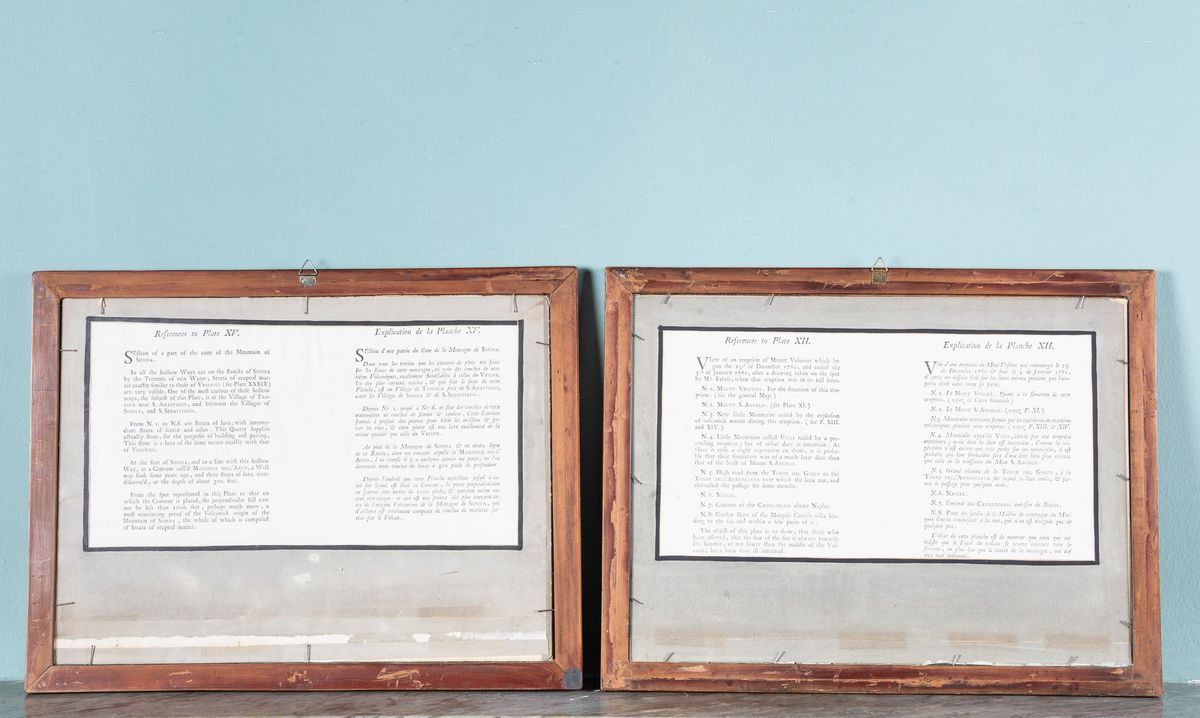 References to Plate XV.
Section of a part of the cone of the Mountain of
Somma.
In all the hollow Ways cut on the flancks of Somma
by the Torrents of rain Water; Strata of erupted mat-
ter exactly similar to those of Vesuvius (see Plate XXXIX)
are very visible. One of the most curious of these hollow
ways, the subject of this Plate, is at the Village of
near S. Anastasio, and between the Villages of
Somma, and S. Sebastiano.
From N. 1. to N.6. are Strata of lava, with interme-
diate strata of scoriæ and ashes. This Quarry supplies
stone, for the purposes of building and paving,
This stone is a lava of the same nature exactly with that
of Vesuvius.
At the foot of Somma, and in a line with this hollow
Way, at a Convent call'd Madonna dell'Arco, a Well
was sunk some years ago, and three strata of lava were
discover'd, at the depth of about 300. feet.
From the spot represented in this Plate to that on
which the Convent is placed, the perpendicular fall can
not be less than feet, perhaps much more, a
most convincing proof of the Volcanick origin of the
Mountain of Somma, the whole of which is composed
of Strata of erupted matter.
Explication de la Planche XV.
Section d'une partie du Cone de la Montagne de Somma.
Dans tous les ravins que les torrents de pluie ont faits
sur les flancs de cette montagne, on voit des couches de ma-
tières Volcaniques, exactement Semblables à celles du Vesuve.
Un des plus curieux ravins, & qui fait le sujet de cette
Planche, est au Village de près de S. Anastasio,
entre les Villages de Somma & de S. Sebastiano.
Depuis N.º 1. jusqu'à N.º 6. ce sont des couches de lave
entremêlées de couches de scories & cendres. Cette Carrière
fournit à présent des pierres pour bâtir les maisons & pa-
ver les rües, & cette pierre est une lave exactement de la
même qualité que celle du Vesuve.
Au pied de la Montagne de Somma, & en droite ligne
de ce Ravin, dans un couvent appellé la Madonna dell'
Arco, l'on creusa il y a quelques années un puits, ou l'on
découvrit trois couches de laves à 300 pieds de profondeur.
Depuis l'endroit que cette Planche représente jusqu'à ce-
lui sur lequel est situé ce Couvent, la pente perpendiculaire
ne sauroit être moins de pieds, & peutêtre même en-
core davantage: ce qui est une preuve des plus convaincan-
tes de l'origine Volcanique de la Montagne de Somma, qui
d'ailleurs est entièrement composée de couches de matières jet-
tées par le Volcan.
References to Plate XII.
View of an eruption of Mount Vesuvius which be-
gan the 23.d of December 1760, and ended the
5.th of January 1761, after a drawing taken on the spot
by Mr Fabris, when that eruption was in its full force.
N. 1. Mount Vesuvius. For the situation of this eru-
ption. (see the general Map.)
N. 2. Mount S. Angelo. (see Plate XI.)
N. 3. New little Mountains raised by the explosion
of volcanick matter during this eruption. (see P. XIII.
and XIV.)
N. 4. Little Mountains called Viuli raised by a pre-
ceeding eruption; but of what date is uncertain. As
there is only a slight vegetation on them, it is proba-
ble that their formation was of a much later date than
that of the birth of Mount S. Angelo.
N. 5. High road from the Torre del Greco to the
Torre dell'Annunciata over which the lava ran, and
obstructed the passage for some months.
N. 6. Naples.
N. 7. Convent of the Camaldolese above Naples.
N. 8. Garden Gate of the Marquis villa lea-
ding to the sea and within a few paces of it.
The object of this plate is to shew, that those who
have asserted, that the seat of the fire is always towards
the summit, or not lower than the middle of the Vol-
cano, have been very ill informed.
Explication de la Planche XII.
Vue d'une éruption du Mont Vesuve qui commença le 23.
de Decembre 1760 & finit le 5 de Janvier 1761,
d'après un dessein fait sur les lieux mêmes pendant que l'éru-
ption étoit dans toute sa force.
N. 1. Le Mont Vesuve. Quant à la situation de cette
éruption. (voyez la Carte Générale)
N. 2. Le Mont S. Angelo. (voyez P. XI.)
N. 3. Monticules nouveaux formés par les explosions de matières
volcaniques pendant cette éruption. (voyez P. XIII. & XIV.
N. 4. Monticules appellés Viuli, élevés par une éruption
antérieure; mais dont la date est incertaine. Comme la vé-
gétation n'est encore que très petite sur ces monticules, il est
probable que leur formation sera d'une date bien plus récente
que celle de la naissance du Mont S. Angelo.
N. 5. Grand chemin de la Torre del Greco, à la
Torre dell'Annunciata sur lequel la lave coula, & fer-
ma le passage pour quelques mois.
N. 6. Naples.
N. 7. Couvent des Camaldolese audessus de Naples.
N. 8. Porte du jardin de la Maison de campagne du Mar-
quis conduisant à la mer, qui n'en est éloignée que de
quelques pas.
L'objet de cette planche est de montrer que ceux qui ont
le Foyer du volcan se trouve toujours vers le
sommet, ou plus bas que le centre de la montagne, ont été
très mal informés.